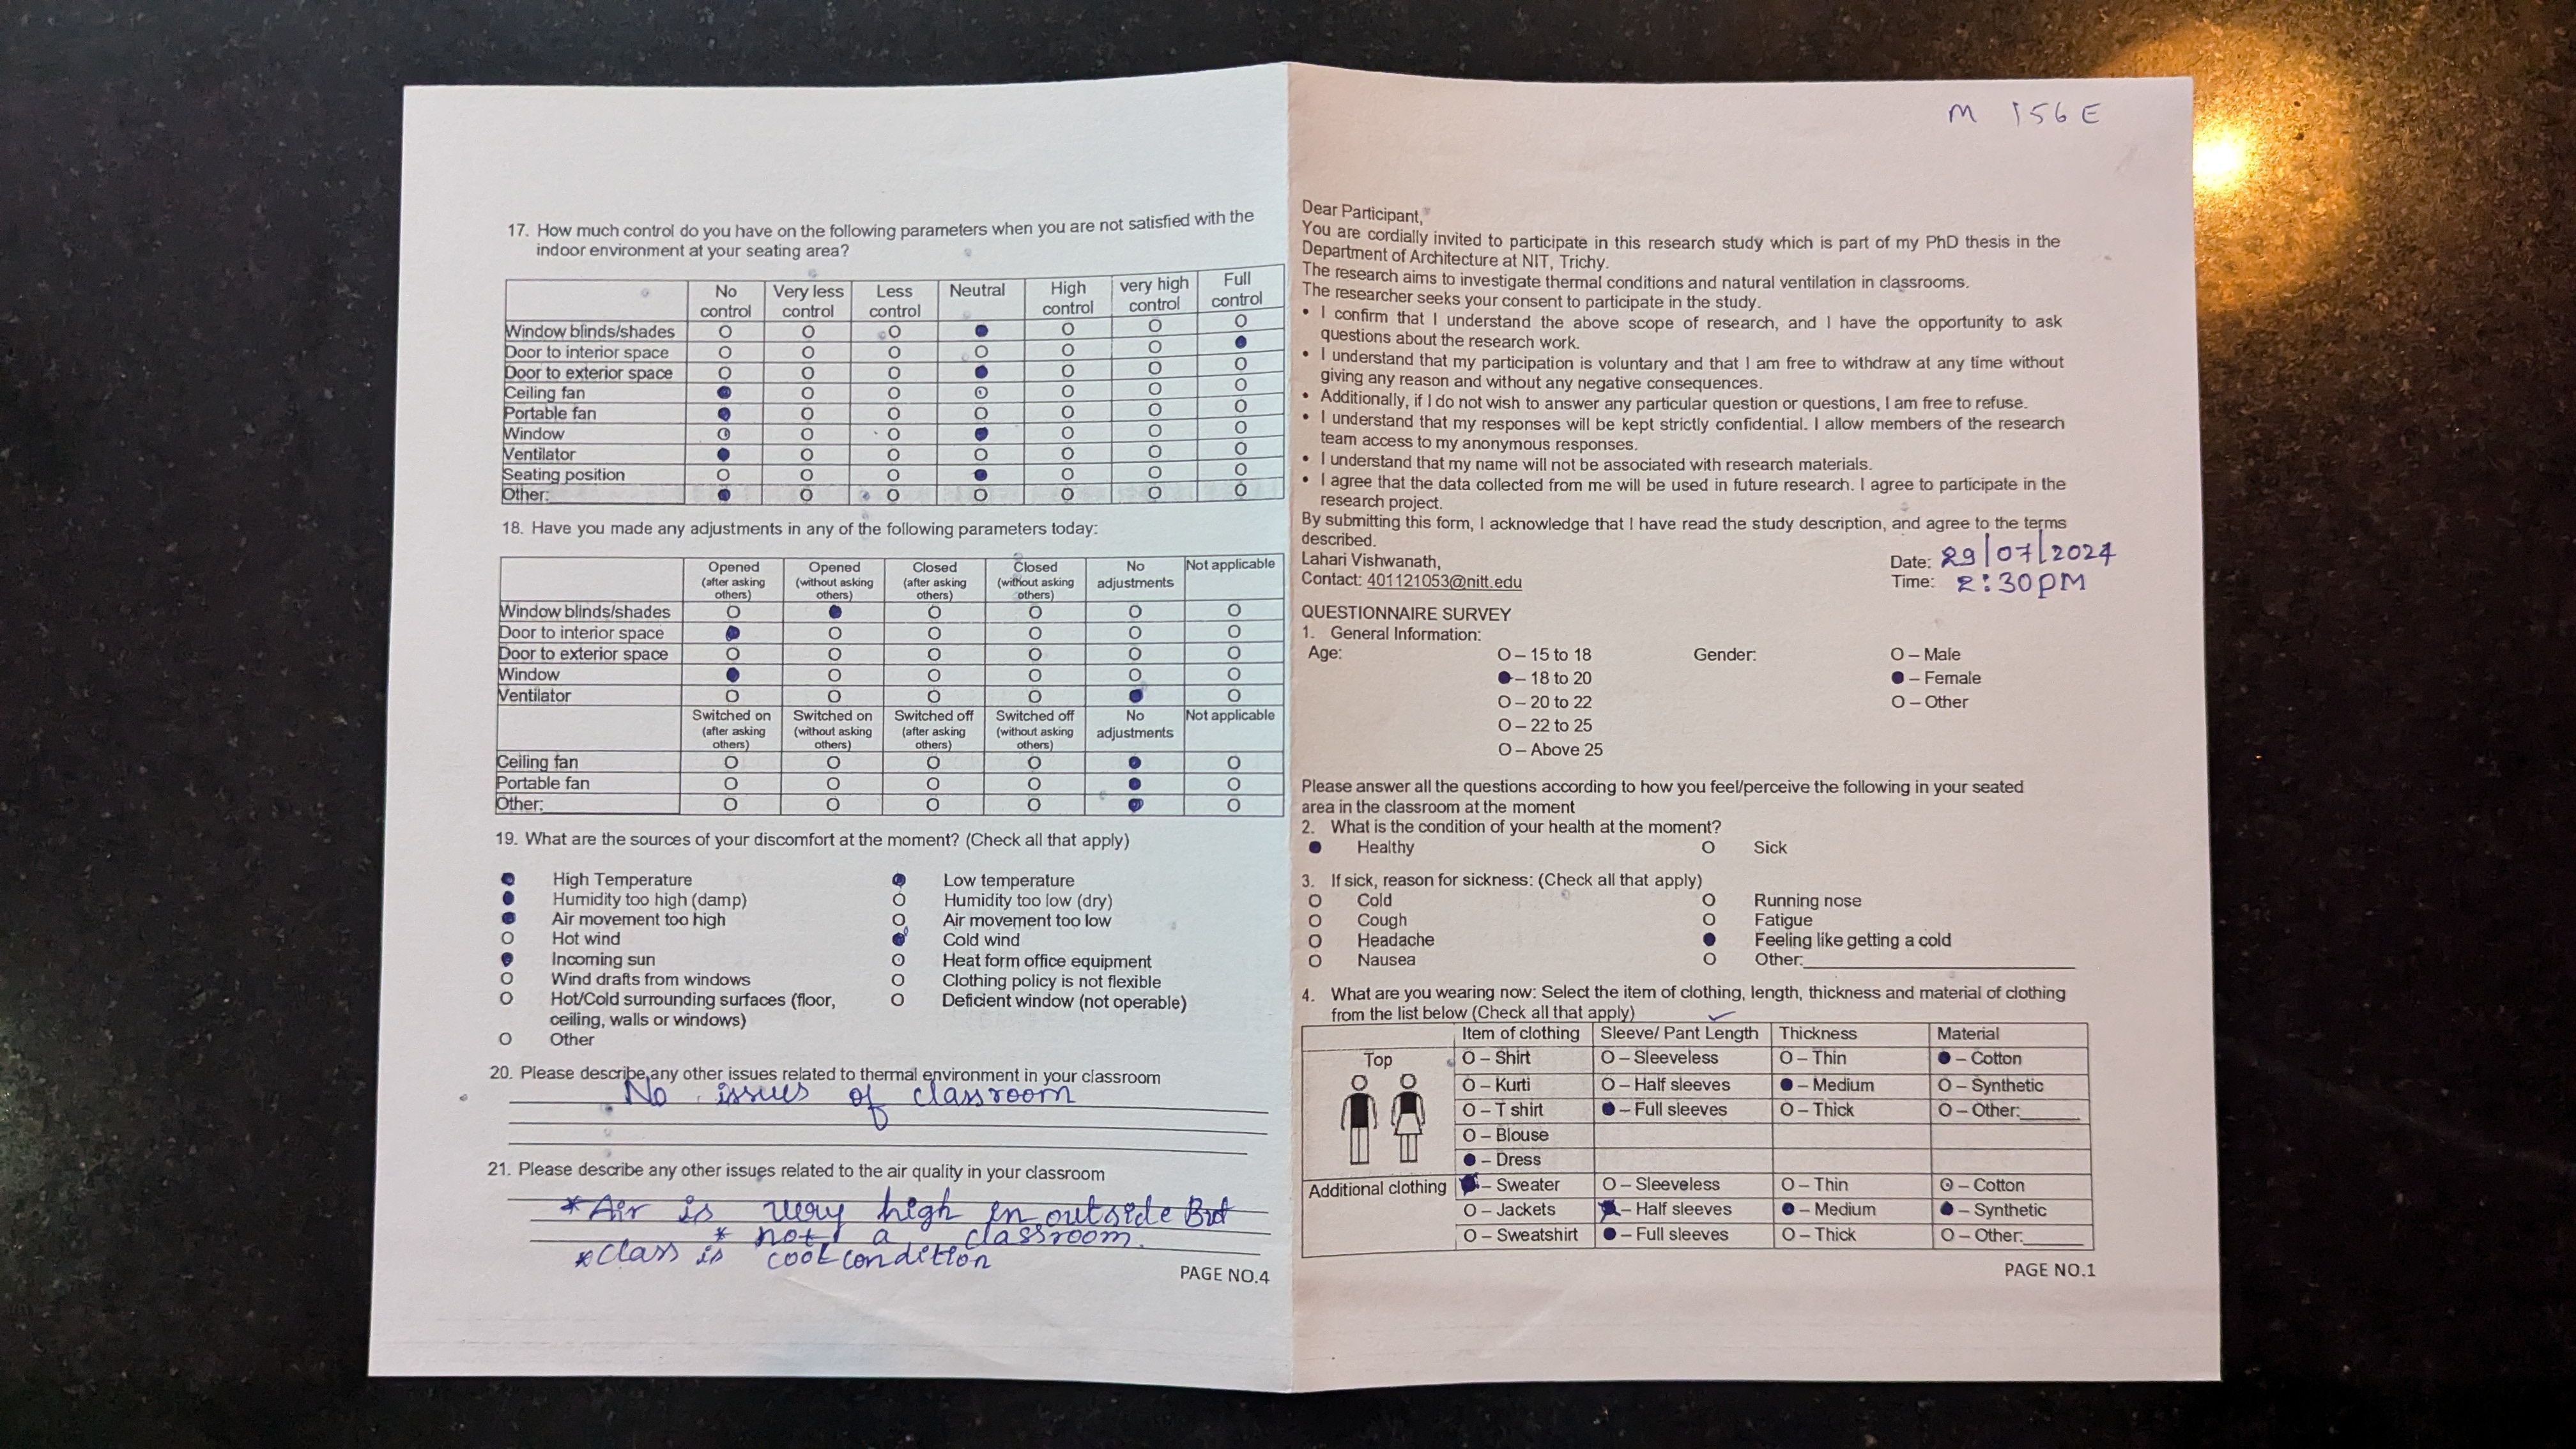 17. How much control do you have on the following parameters when you are not satisfied with the
indoor environment at your seating area?
No control Very less control Less control Neutral High control very high control Full control
Window blinds/shades O O O ● O O O
Door to interior space O O O O O O ●
Door to exterior space O O O ● O O O
Ceiling fan ● O O O O O O
Portable fan ● O O O O O O
Window O O O ● O O O
Ventilator ● O O O O O O
Seating position O O O ● O O O
Other: ● O O O O O O
18. Have you made any adjustments in any of the following parameters today:
Opened (after asking others) Opened (without asking others) Closed (after asking others) Closed (without asking others) No adjustments Not applicable
Window blinds/shades O ● O O O O
Door to interior space ● O O O O O
Door to exterior space O O O O O O
Window ● O O O O O
Ventilator O O O O ● O
Switched on (after asking others) Switched on (without asking others) Switched off (after asking others) Switched off (without asking others) No adjustments Not applicable
Ceiling fan O O O O ● O
Portable fan O O O O ● O
Other: O O O O ● O
19. What are the sources of your discomfort at the moment? (Check all that apply)
● High Temperature ● Low temperature
● Humidity too high (damp) O Humidity too low (dry)
● Air movement too high O Air movement too low
O Hot wind ● Cold wind
● Incoming sun O Heat form office equipment
O Wind drafts from windows O Clothing policy is not flexible
O Hot/Cold surrounding surfaces (floor, O Deficient window (not operable)
ceiling, walls or windows)
O Other
20. Please describe any other issues related to thermal environment in your classroom
No issues of classroom
21. Please describe any other issues related to the air quality in your classroom
*Air is very high in outside But
* not a classroom.
*class is cool condition
PAGE NO.4
M 156 E
Dear Participant,
You are cordially invited to participate in this research study which is part of my PhD thesis in the
Department of Architecture at NIT, Trichy.
The research aims to investigate thermal conditions and natural ventilation in classrooms.
The researcher seeks your consent to participate in the study.
• I confirm that I understand the above scope of research, and I have the opportunity to ask
questions about the research work.
• I understand that my participation is voluntary and that I am free to withdraw at any time without
giving any reason and without any negative consequences.
• Additionally, if I do not wish to answer any particular question or questions, I am free to refuse.
• I understand that my responses will be kept strictly confidential. I allow members of the research
team access to my anonymous responses.
• I understand that my name will not be associated with research materials.
• I agree that the data collected from me will be used in future research. I agree to participate in the
research project.
By submitting this form, I acknowledge that I have read the study description, and agree to the terms
described.
Lahari Vishwanath, Date: 29/07/2024
Contact: 401121053@nitt.edu Time: 2:30PM
QUESTIONNAIRE SURVEY
1. General Information:
Age: O – 15 to 18 Gender: O – Male
● – 18 to 20 ● – Female
O – 20 to 22 O – Other
O – 22 to 25
O – Above 25
Please answer all the questions according to how you feel/perceive the following in your seated
area in the classroom at the moment
2. What is the condition of your health at the moment?
● Healthy O Sick
3. If sick, reason for sickness: (Check all that apply)
O Cold O Running nose
O Cough O Fatigue
O Headache ● Feeling like getting a cold
O Nausea O Other:
4. What are you wearing now: Select the item of clothing, length, thickness and material of clothing
from the list below (Check all that apply) ✓
Item of clothing Sleeve/ Pant Length Thickness Material
Top O – Shirt O – Sleeveless O – Thin ● – Cotton
O – Kurti O – Half sleeves ● – Medium O – Synthetic
O – T shirt ● – Full sleeves O – Thick O – Other:
O – Blouse
● – Dress
Additional clothing ● – Sweater O – Sleeveless O – Thin O – Cotton
O – Jackets ● – Half sleeves ● – Medium ● – Synthetic
O – Sweatshirt ● – Full sleeves O – Thick O – Other:
PAGE NO.1